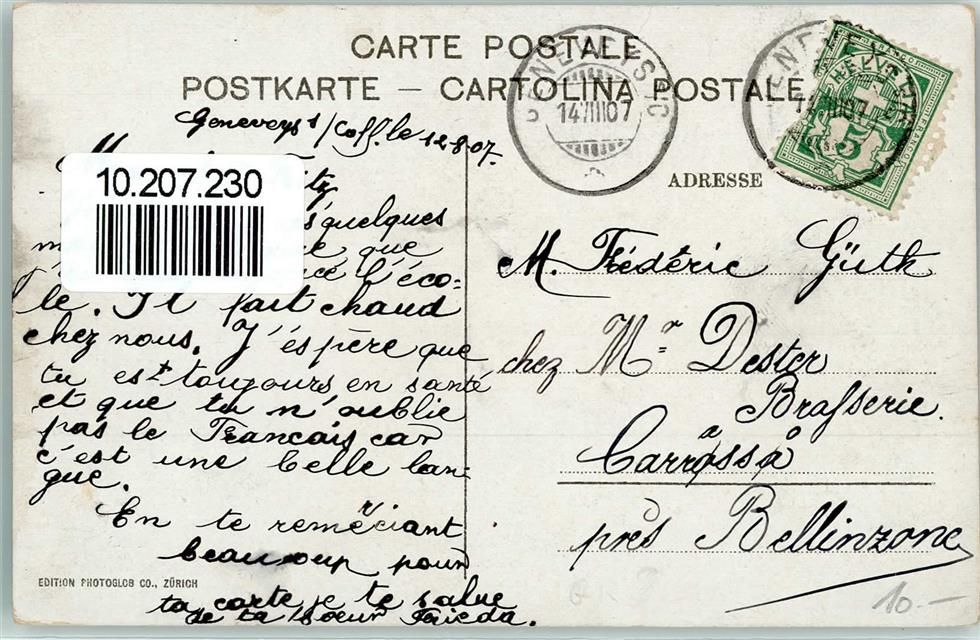 CARTE POSTALE
POSTKARTE – CARTOLINA POSTALE
Geneveys s/Coff. le 12-8-07.
10.207.230
s quelques
que
l'éco-
le. Il fait chaud
chez nous. J'éspère que
tu est toujours en santé
et que tu n'oublie
pas le Francais car
c'est une belle lan-
gue.
En te remerciant
beaucoup pour
ta carte je te salue
de ta sœur Frieda.
EDITION PHOTOGLOB CO., ZÜRICH
GENEVEYS
14 VIII 07
HELVETIA
5
ADRESSE
M. Frédéric Güth
chez Mr Dester
Brasserie.
Carrassa
près Bellinzone
10.-